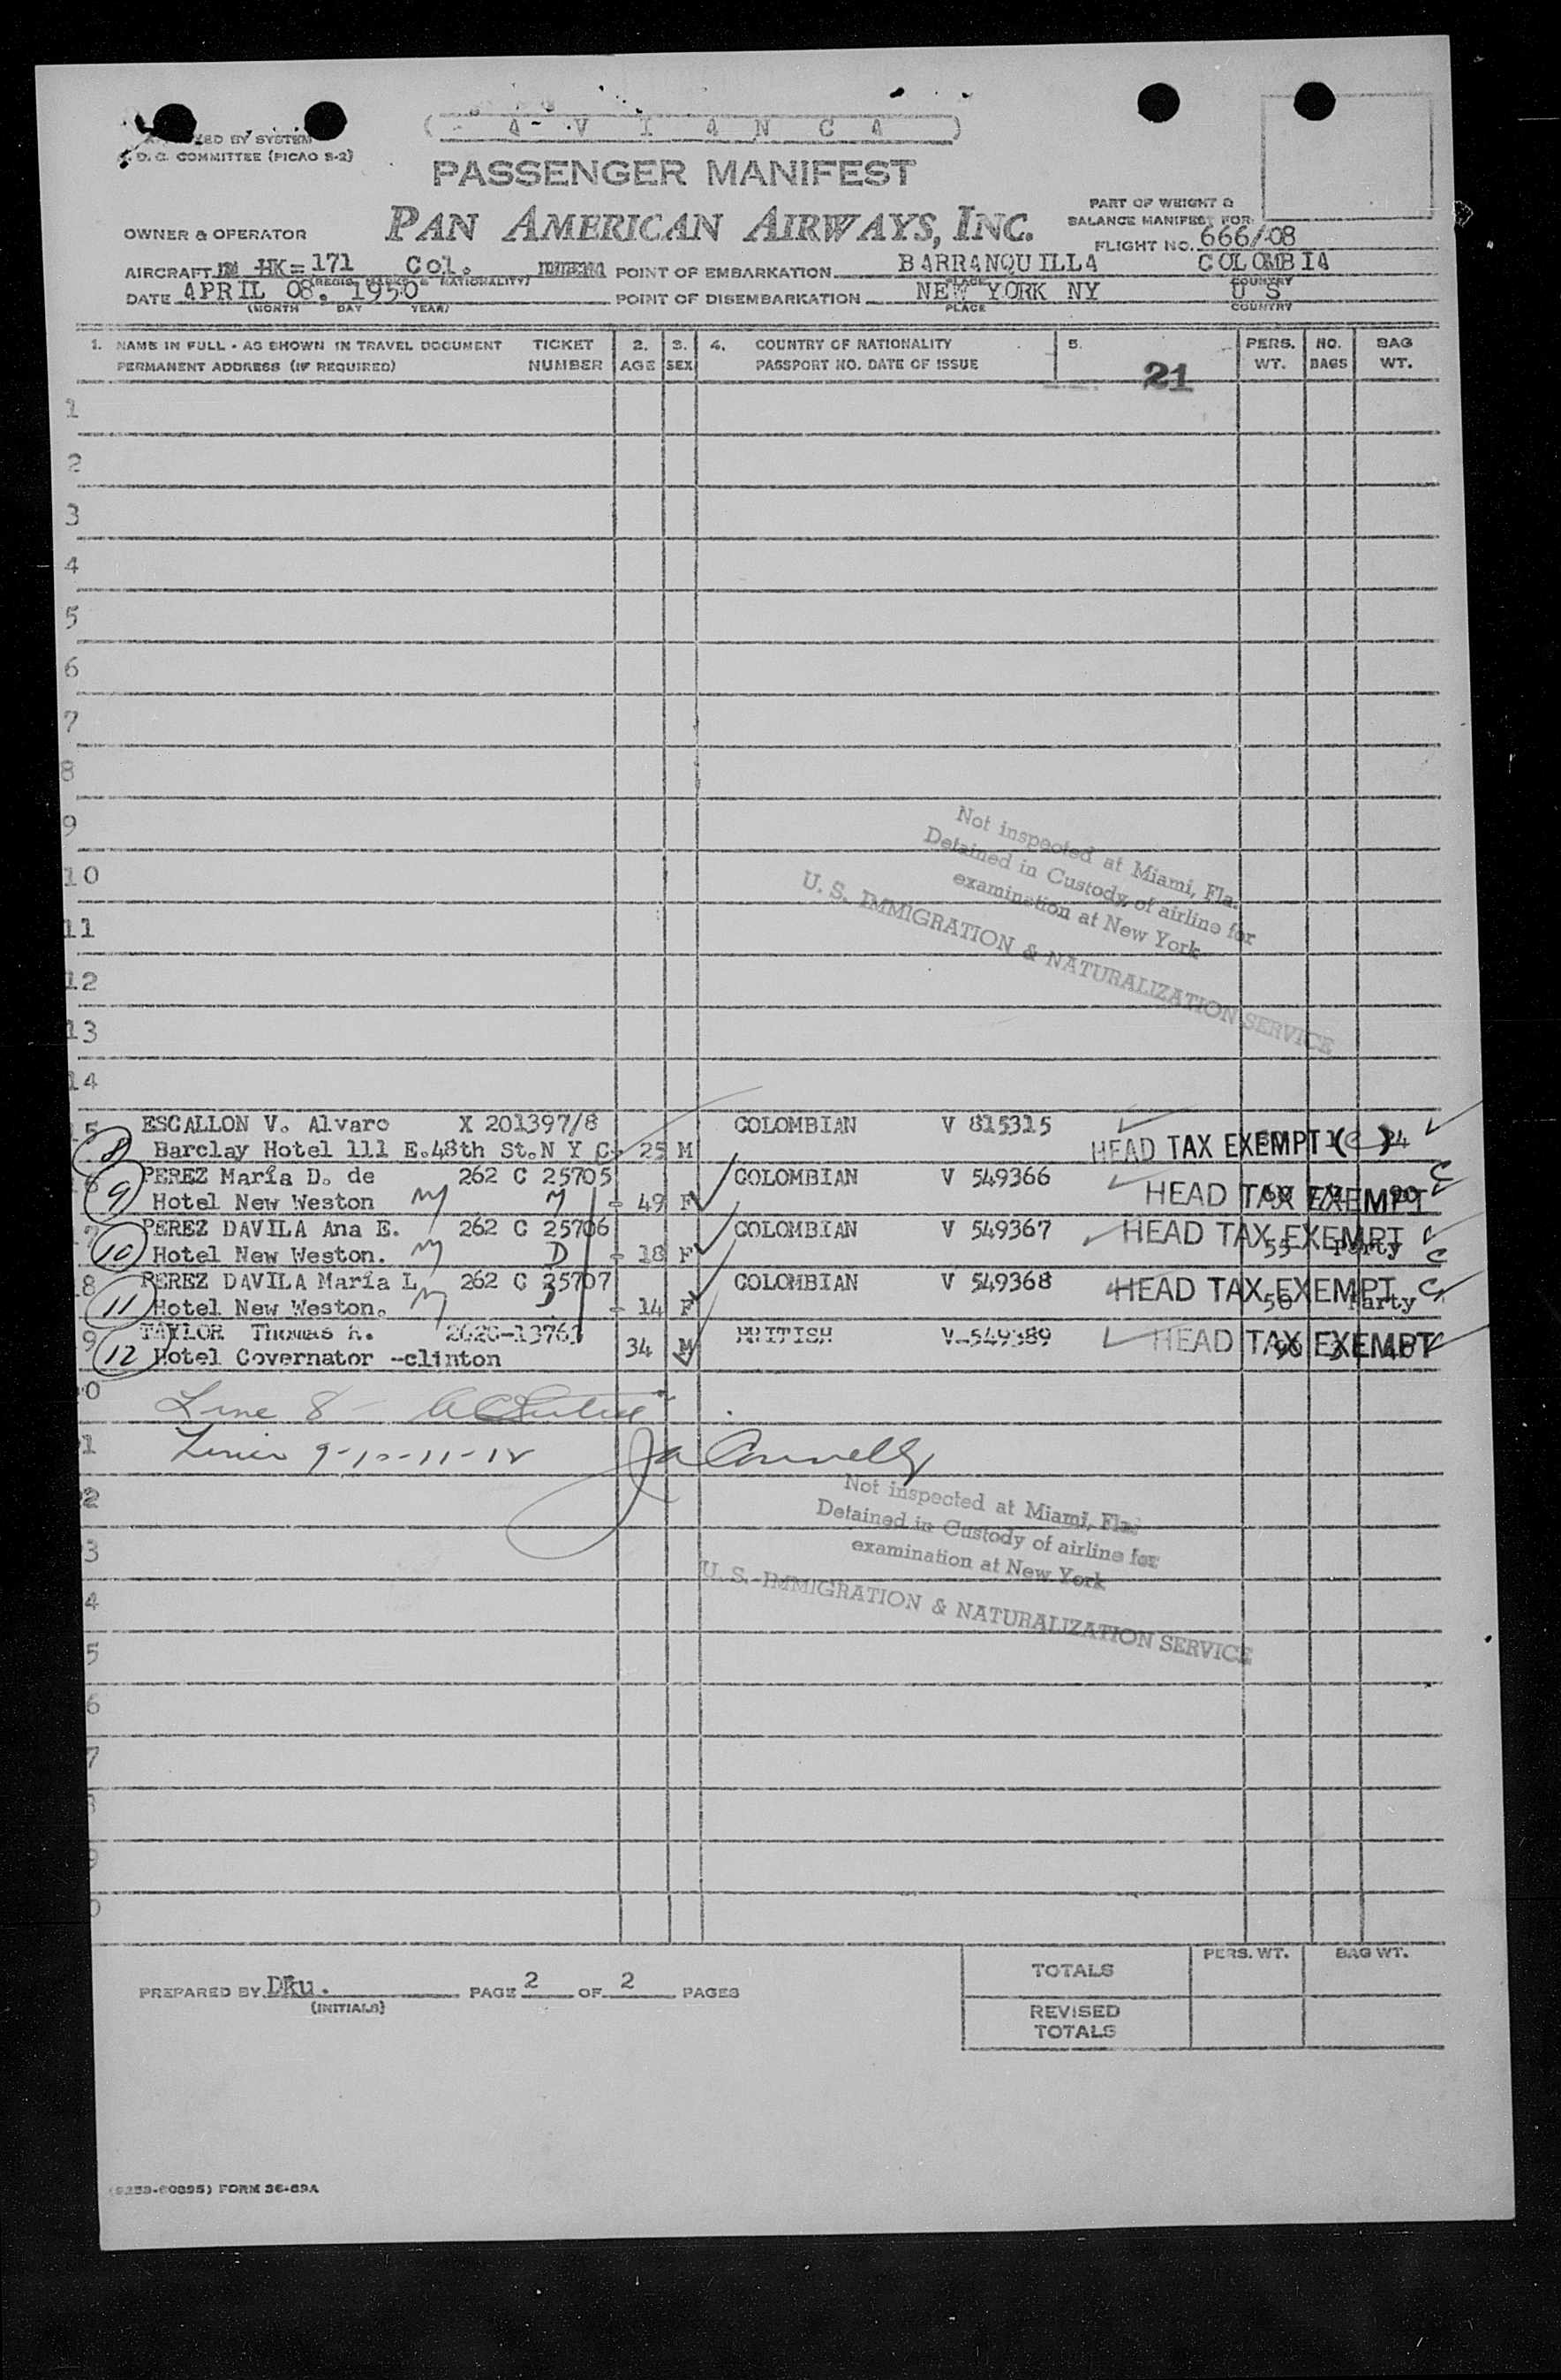 ( A V I A N C A )
BY SYSTEM
COMMITTEE (PICAO S-2)
PASSENGER MANIFEST
PAN AMERICAN AIRWAYS, INC.
PART OF WEIGHT &
BALANCE MANIFEST FOR
OWNER & OPERATOR
FLIGHT NO. 666/08
AIRCRAFT HK-171 Col. POINT OF EMBARKATION BARRANQUILLA COLOMBIA
(REGIS. MARKS NATIONALITY) PLACE COUNTRY
DATE APRIL 08, 1950 POINT OF DISEMBARKATION NEW YORK NY U S
(MONTH DAY YEAR) PLACE COUNTRY
1. NAME IN FULL - AS SHOWN IN TRAVEL DOCUMENT TICKET 2. 3. 4. COUNTRY OF NATIONALITY 5. PERS. NO. BAG
PERMANENT ADDRESS (IF REQUIRED) NUMBER AGE SEX PASSPORT NO. DATE OF ISSUE 21 WT. BAGS WT.
1
2
3
4
5
6
7
8
9
Not inspected at Miami, Fla.
Detained in Custody of airline for
examination at New York
U. S. IMMIGRATION & NATURALIZATION SERVICE
10
11
12
13
14
5 ESCALLON V. Alvaro X 201397/8 COLOMBIAN V 815315
8 Barclay Hotel 111 E.48th St.N Y C 25 M HEAD TAX EXEMPT
PEREZ María D. de 262 C 25705 COLOMBIAN V 549366
9 Hotel New Weston 49 F HEAD TAX EXEMPT
7 PEREZ DAVILA Ana E. 262 C 25706 COLOMBIAN V 549367 HEAD TAX EXEMPT
10 Hotel New Weston. 18 F 55 Party
8 PEREZ DAVILA María L 262 C 25707 COLOMBIAN V 549368 HEAD TAX EXEMPT
11 Hotel New Weston. 14 F 50 Party
9 TAYLOR Thomas 262C-13763 34 M BRITISH V-549389 HEAD TAX EXEMPT
12 Hotel Governator -clinton
0 Line 8
1 Lines 9-10-11-12 Connelly
2
Not inspected at Miami, Fla.
Detained in Custody of airline for
examination at New York
U. S. IMMIGRATION & NATURALIZATION SERVICE
3
4
5
6
7
PERS. WT. BAG WT.
TOTALS
PREPARED BY DRu. PAGE 2 OF 2 PAGES
(INITIALS)
REVISED
TOTALS
FORM 36-69A